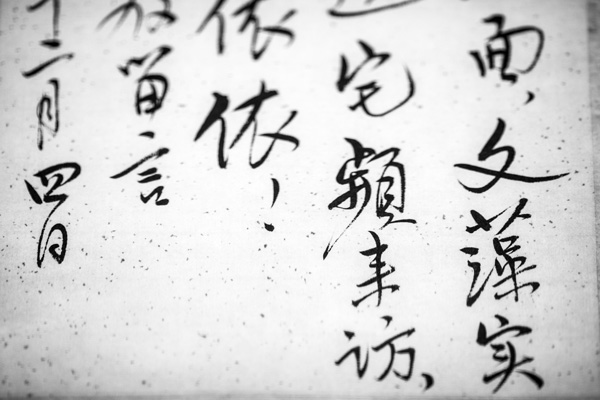 面，文藻实
宅頻来访，
依依！
留言
十二月四日